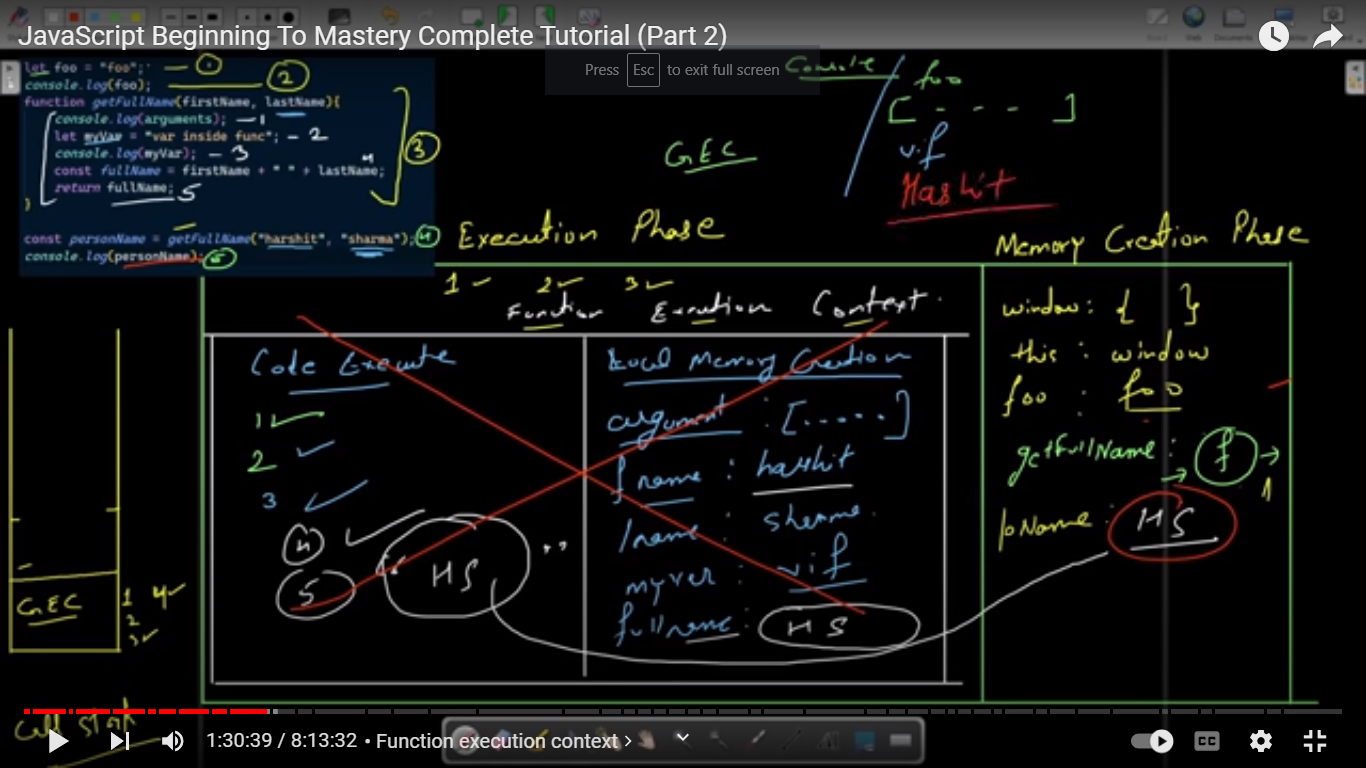 JavaScript Beginning To Mastery Complete Tutorial (Part 2)
Press Esc to exit full screen
let foo = "foo"; 1
console.log(foo); 2
function getFullName(firstName, lastName){
console.log(arguments); 1
let myVar = "var inside func"; 2
console.log(myVar); 3
const fullName = firstName + " " + lastName; 4
return fullName; 5
}
3
const personName = getFullName("harshit", "sharma"); 4
console.log(personName); 5
Console
foo
[ - - - ]
v.f
Harshit
GEC
Execution Phase
Memory Creation Phase
1 2 3
Function Execution Context
Code Execute
1
2
3
4
5
" HS "
Local Memory Creation
argument : [.....]
fname : harshit
lname : sharma
myvar : vif
fullname : HS
window : { }
this : window
foo : foo
getFullName : f
1
pName : HS
GEC
1 4
2
3
Call Stack
1:30:39 / 8:13:32 • Function execution context
CC